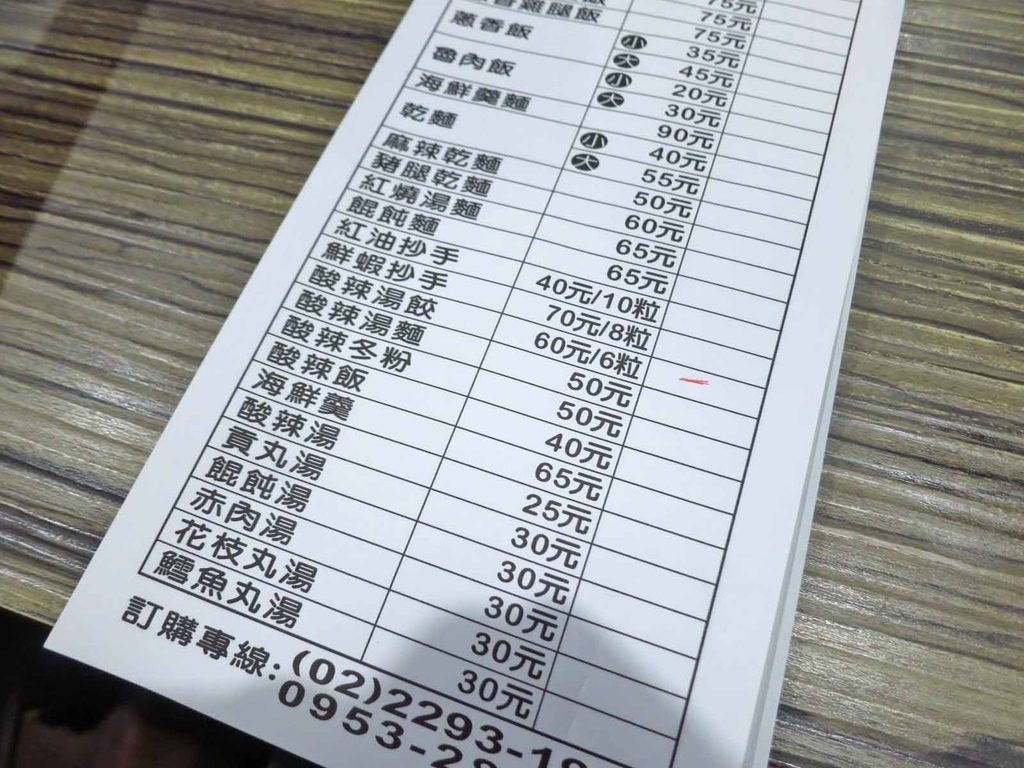 75元
75元
香雞腿飯 75元
蔥香飯 小 35元
大 45元
魯肉飯 小 20元
大 30元
海鮮羹麵 90元
乾麵 小 40元
大 55元
麻辣乾麵 50元
豬腿乾麵 60元
紅燒湯麵 65元
餛飩麵 65元
紅油抄手 40元/10粒
鮮蝦抄手 70元/8粒
酸辣湯餃 60元/6粒
酸辣湯麵 50元
酸辣冬粉 50元
酸辣飯 40元
海鮮羹 65元
酸辣湯 25元
貢丸湯 30元
餛飩湯 30元
赤肉湯 30元
花枝丸湯 30元
鱈魚丸湯 30元
訂購專線:(02)2293-19
0953-28